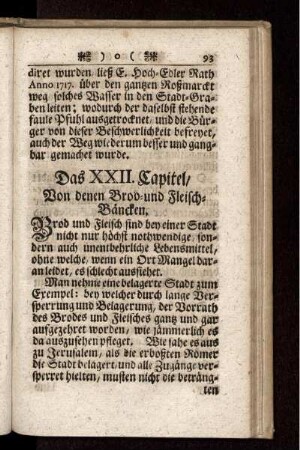 ) o ( 93
diret wurden ließ E. Hoch-Edler Rath
Anno 1717. über den gantzen Roßmarckt
weg solches Wasser in den Stadt-Gra-
ben leiten; wodurch der daselbst stehende
faule Pfuhl ausgetrocknet, und die Bür-
ger von dieser Beschwerlichkeit befreyet,
auch der Weg wiederum besser und gang-
bar gemachet wurde.
Das XXII. Capitel/
Von denen Brod-und Fleisch-
Bäncken.
Brod und Fleisch sind bey einer Stadt
nicht nur höchst nothwendige, son-
dern auch unentbehrliche Lebensmittel,
ohne welche, wenn ein Ort Mangel dar-
an leidet, es schlecht aussiehet.
Man nehme eine belagerte Stadt zum
Exempel: bey welcher durch lange Ver-
sperrung und Belagerung, der Vorrath
des Brodes und Fleisches gantz und gar
aufgezehret worden, wie jämmerlich es
da auszusehen pfleget. Wie sahe es aus
zu Jerusalem, als die erboßten Römer
die Stadt belagert, und alle Zugänge ver-
sperret hielten, musten nicht die beträng-
ten